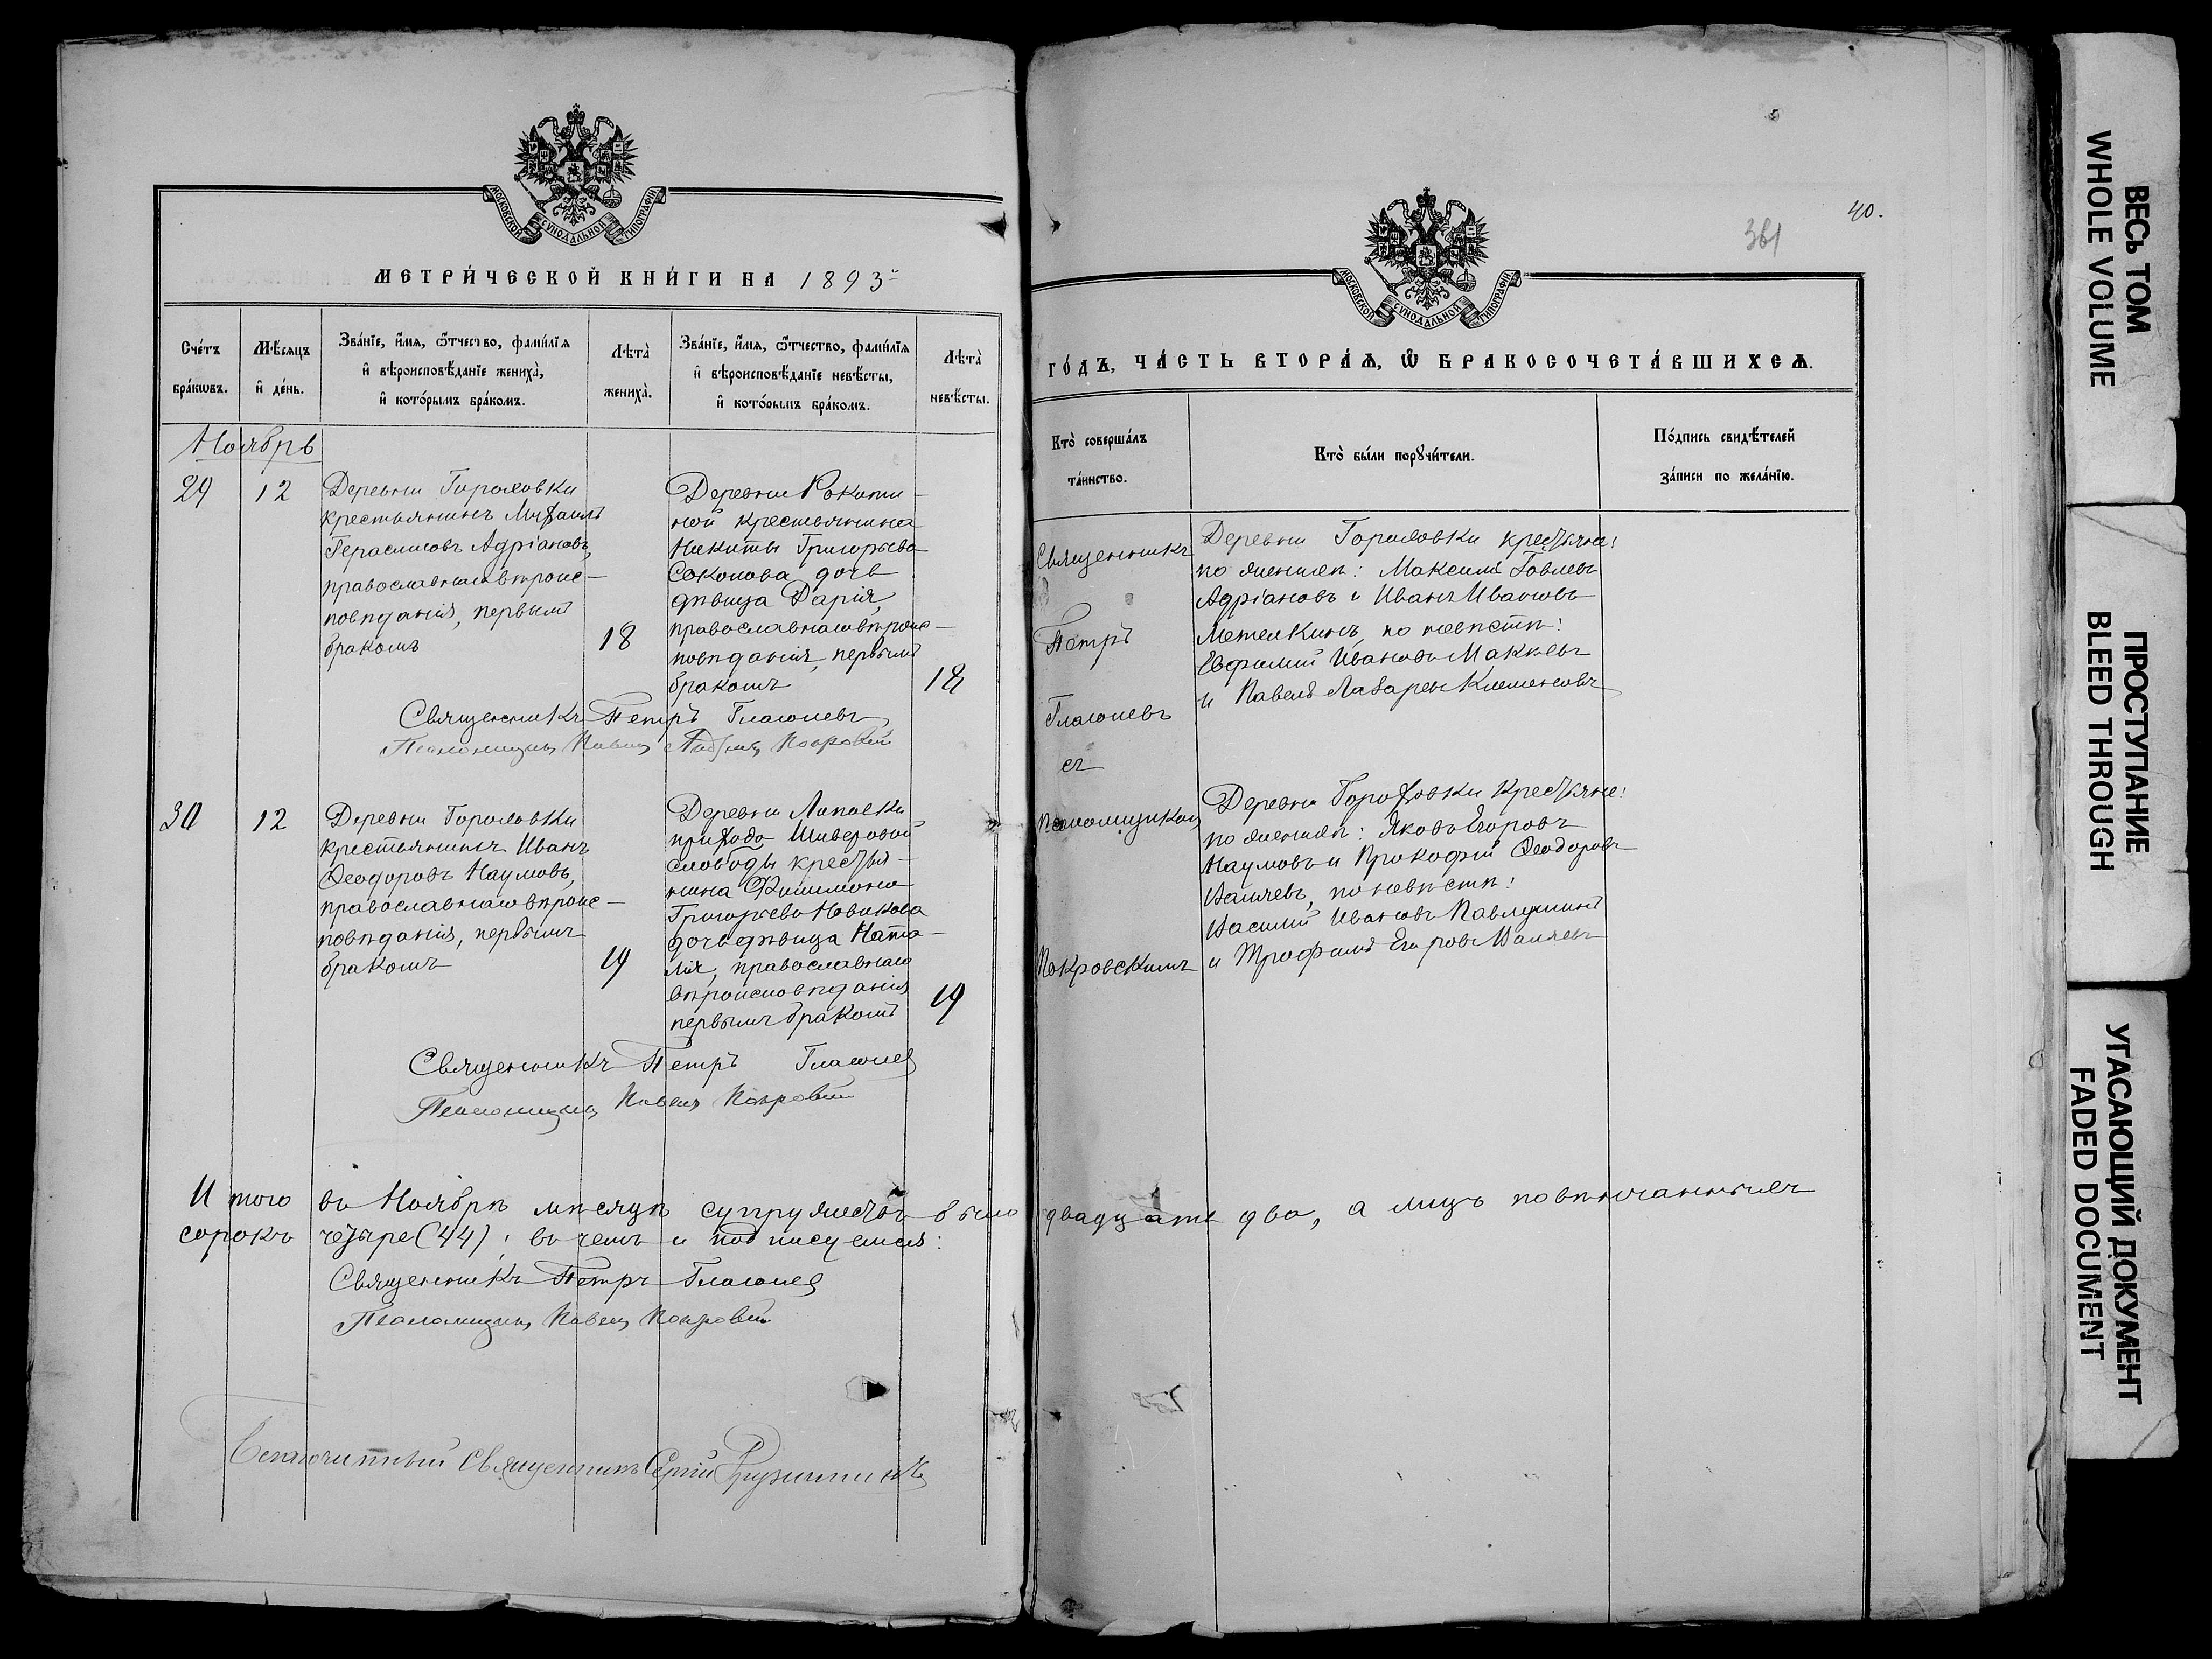 МОСКОВСКОЙ СѴНОДАЛЬНОЙ ТИПОГРАФІИ
МЕТРИ́ЧЕСКОЙ КНИ́ГИ НА 1893й
Сче́тъ бра́кωвъ.
Мѣ́сяцъ и҆ де́нь.
Зва́нїе, и҆́мѧ, ѻ҆́тчество, фами́лїѧ
и҆ вѣроисповѣ́данїе жениха̀,
и҆ кото́рымъ бра́комъ.
Лѣта̀ жениха̀.
Зва́нїе, и҆́мѧ, ѻ҆́тчество, фами́лїѧ
и҆ вѣроисповѣ́данїе невѣ́сты,
и҆ кото́рымъ бра́комъ.
Лѣта̀ невѣ́сты.
Ноябрь
29
12
Деревни Гороховки
крестьянинъ Михаилъ
Герасимовъ Адріановъ,
православнаго вѣроис-
повѣданія, первымъ
бракомъ
18
Деревни Рокити-
ной крестьянина
Никиты Григорьева
Соколова дочь
дѣвица Дарія,
православнаго вѣроис-
повѣданія, первымъ
бракомъ
18
Священникъ Петръ Глаголевъ
Псаломщикъ Павелъ Покровскій
30
12
Деревни Гороховки
крестьянинъ Иванъ
Ѳеодоровъ Наумовъ,
православнаго вѣроис-
повѣданія, первымъ
бракомъ
19
Деревни Липовки
прихода
слободы крестья-
нина Филимона
Григорьева Новикова
дочь дѣвица Ната-
лія, православнаго
вѣроисповѣданія
первымъ бракомъ
19
Священникъ Петръ Глаголев
Псаломщикъ Павелъ Покровскій
Итого въ Ноябрѣ мѣсяцѣ супружествъ было
сорокъ четыре (44); въ чемъ и подписуемся:
Священникъ Петръ Глаголев
Псаломщикъ Павелъ Покровскій
священникъ Сергій
40.
361
МОСКОВСКОЙ СѴНОДАЛЬНОЙ ТИПОГРАФІИ
ГО́ДЪ, ЧА́СТЬ ВТОРА́Ѧ, Ѡ҆ БРАКОСОЧЕТА́ВШИХСѦ.
Кто̀ соверша́лъ та́инство.
Кто̀ бы́ли порꙋчи́тели.
По́дпись свидѣ́телей
за́писи по жела́нїю.
Священникъ
Петръ
Глаголевъ
съ
псаломщикомъ
Покровскимъ
Деревни Гороховки крестьяне:
по женихѣ: Максимъ
Адріановъ и Иванъ Ивановъ
Метелкинъ, по невѣстѣ:
Евфимій Ивановъ
и Павелъ Лазаревъ
Деревни Гороховки крестьяне:
по женихѣ: Яковъ Егоровъ
Наумовъ и Прокофій Ѳеодоровъ
по невѣстѣ:
Василій Ивановъ
и Трофимъ Егоровъ
двадцать два, а лицъ повѣнчанныхъ
ВЕСЬ ТОМ
WHOLE VOLUME
ПРОСТУПАНИЕ
BLEED THROUGH
УГАСАЮЩИЙ ДОКУМЕНТ
FADED DOCUMENT